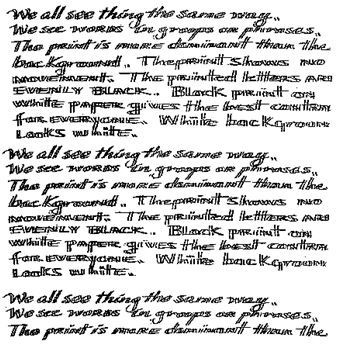 We all see thing the same way..
We see words in groups or phrases..
The print is more dominant than the
background.. The print shows no
movement. The printed letters are
evenly black.. Black print on
white paper gives the best contra
for everyone. White background
Looks white..
We all see thing the same way..
We see words in groups or phrases..
The print is more dominant than the
background.. The print shows no
movement. The printed letters are
evenly black.. Black print on
white paper gives the best contra
for everyone. White background
Looks white..
We all see thing the same way..
We see words in groups or phrases..
The print is more dominant than the